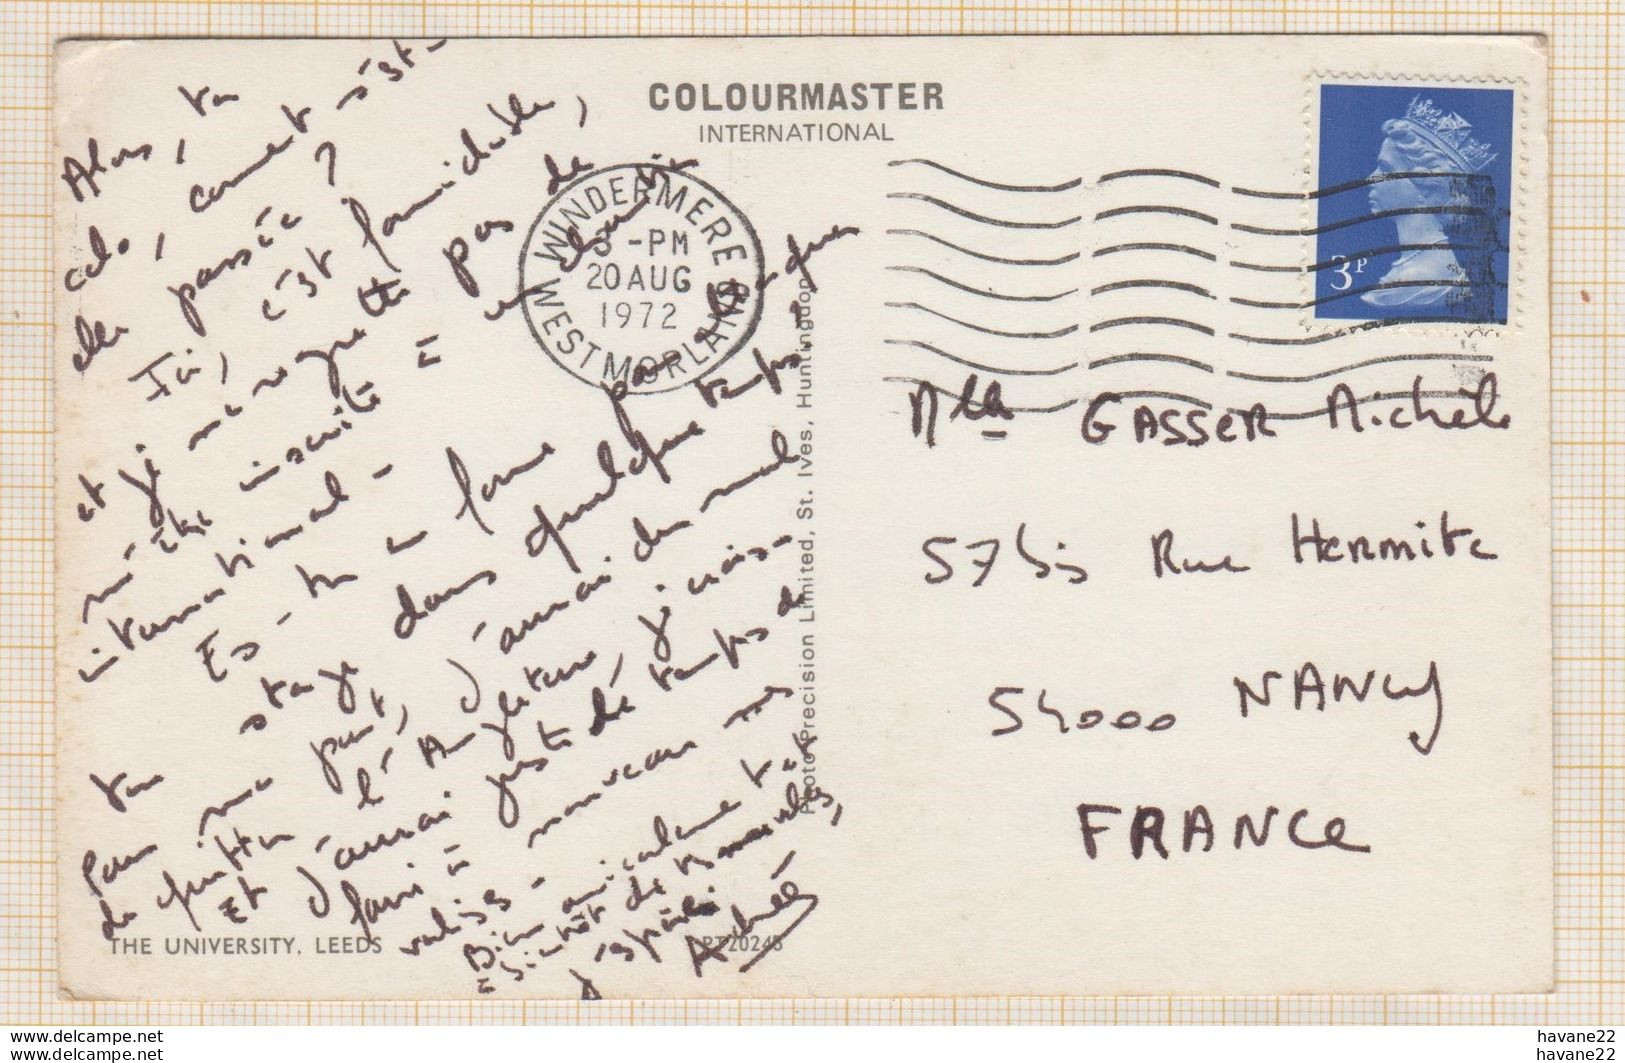 COLOURMASTER
INTERNATIONAL
WINDERMERE
3 -PM
20 AUG
1972
WESTMORLAND
3P
Alors, ta
colo, comment s'est-
elle passée ?
Ici, c'est formidable,
et je ne regrette pas de
m'être inscrite à un chantier
international -
Es-tu en forme pour
ton stage dans quelque temps,
Pour ma part, j'aurai du mal
de quitter l'Angleterre, je crois -
Et j'aurai juste le temps de
faire à nouveau mes
valises -
Bien amicalement
à bientôt de nouvelles,
j'espère
Andrée
Mlle GASSER Michèle
57 bis Rue Hermite
54000 NANCY
FRANCE
Photo Precision Limited, St. Ives, Huntingdon
THE UNIVERSITY, LEEDS
PT20245
havane22
havane22